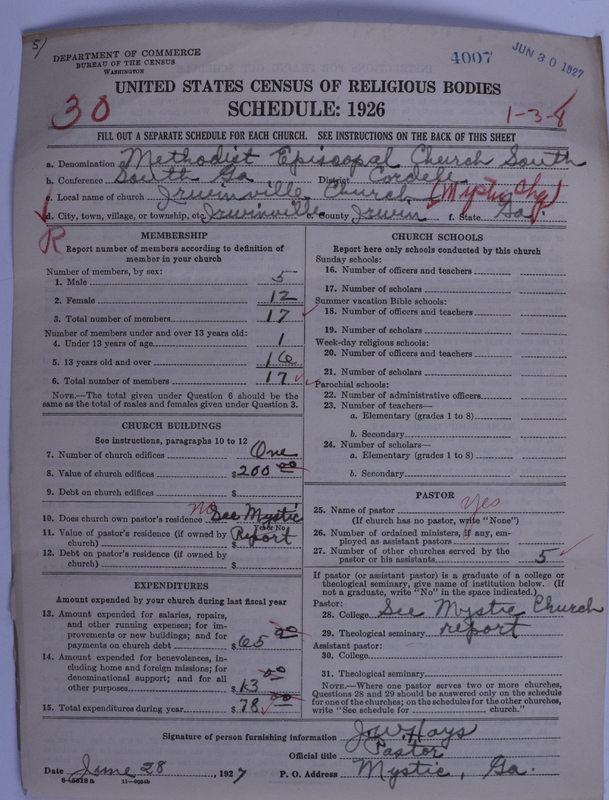 5/
DEPARTMENT OF COMMERCE
BUREAU OF THE CENSUS
WASHINGTON
4007
JUN 30 1927
UNITED STATES CENSUS OF RELIGIOUS BODIES
30
SCHEDULE: 1926
1-3-8
FILL OUT A SEPARATE SCHEDULE FOR EACH CHURCH. SEE INSTRUCTIONS ON THE BACK OF THIS SHEET
a. Denomination Methodist Episcopal Church South
b. Conference South Ga District Cordele
c. Local name of church Irwinville Church (Mystic Chg)
d. City, town, village, or township, etc. Irwinville e. County Irwin f. State Ga.
R
MEMBERSHIP
Report number of members according to definition of
member in your church
Number of members, by sex:
1. Male 5
2. Female 12
3. Total number of members 17
Number of members under and over 13 years old:
4. Under 13 years of age 1
5. 13 years old and over 16
6. Total number of members 17
NOTE.—The total given under Question 6 should be the
same as the total of males and females given under Question 3.
CHURCH BUILDINGS
See instructions, paragraphs 10 to 12
7. Number of church edifices One
8. Value of church edifices $200 00
9. Debt on church edifices $
10. Does church own pastor's residence no See Mystic
Yes or No
11. Value of pastor's residence (if owned by
church) $ Report
12. Debt on pastor's residence (if owned by
church) $
EXPENDITURES
Amount expended by your church during last fiscal year
13. Amount expended for salaries, repairs,
and other running expenses; for im-
provements or new buildings; and for
payments on church debt $65 00
14. Amount expended for benevolences, in-
cluding home and foreign missions; for
denominational support; and for all
other purposes $13 00
15. Total expenditures during year $78 00
CHURCH SCHOOLS
Report here only schools conducted by this church
Sunday schools:
16. Number of officers and teachers
17. Number of scholars
Summer vacation Bible schools:
18. Number of officers and teachers
19. Number of scholars
Week-day religious schools:
20. Number of officers and teachers
21. Number of scholars
Parochial schools:
22. Number of administrative officers
23. Number of teachers—
a. Elementary (grades 1 to 8)
b. Secondary
24. Number of scholars—
a. Elementary (grades 1 to 8)
b. Secondary
PASTOR
25. Name of pastor yes
(If church has no pastor, write "None")
26. Number of ordained ministers, if any, em-
ployed as assistant pastors
27. Number of other churches served by the
pastor or his assistants 5
If pastor (or assistant pastor) is a graduate of a college or
theological seminary, give name of institution below. (If
not a graduate, write "No" in the space indicated.)
Pastor:
28. College See Mystic Church
29. Theological seminary report
Assistant pastor:
30. College
31. Theological seminary
NOTE.—Where one pastor serves two or more churches,
Questions 28 and 29 should be answered only on the schedule
for one of the churches; on the schedules for the other churches,
write "See schedule for church."
Signature of person furnishing information J.W. Hays
Official title Pastor
Date June 28, 1927 P. O. Address Mystic, Ga.